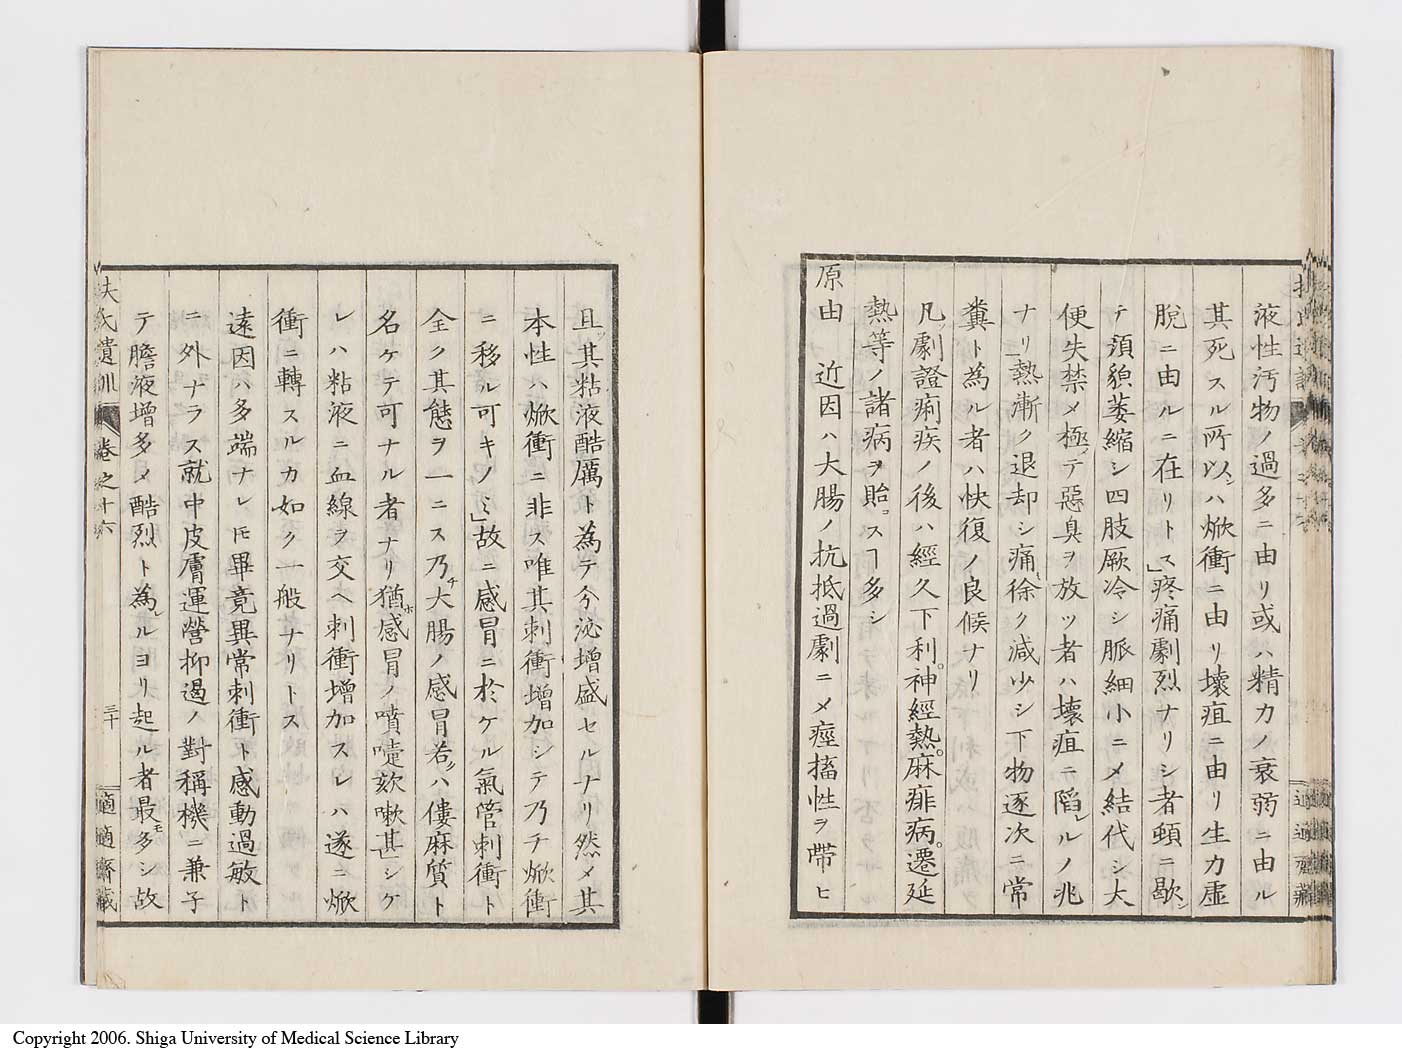 液性汚物ノ過多ニ由リ或ハ精力ノ衰弱ニ由ル
其死スル所以ハ焮衝ニ由リ壞疽ニ由リ生力虚
脱ニ由ルニ在リトス」疼痛劇烈ナリシ者頓ニ歇シ
テ須貌萎縮シ四肢厥冷シ脈細小ニメ結代シ大
便失禁メ極テ惡臭ヲ放ツ者ハ壞疽ニ陷ルノ兆
ナリ」熱漸ク退却シ痛徐ク減少シ下物逐次ニ常
糞ト為ル者ハ快復ノ良候ナリ
凡ソ劇證痢疾ノ後ハ經久下利。神經熱。麻痱病。遷延
熱等ノ諸病ヲ貽スヿ多シ
原由　近因ハ大腸ノ抗抵過劇ニメ痙搐性ヲ帶ヒ
且ツ其粘液酷厲ト為テ分泌增盛セルナリ然メ其
本性ハ焮衝ニ非ス唯其刺衝增加シテ乃チ焮衝
ニ移ル可キノミ」故ニ感冒ニ於ケル氣管刺衝ト
全ク其態ヲ一ニス乃チ大腸ノ感冒若クハ僂麻質ト
名ケテ可ナル者ナリ猶ホ感冒ノ噴嚏欬嗽甚シケ
レハ粘液ニ血線ヲ交ヘ刺衝增加スレハ遂ニ焮
衝ニ轉スルカ如ク一般ナリトス
遠因ハ多端ナレ𪜈畢竟異常刺衝ト感動過敏ト
ニ外ナラス就中皮膚運營抑遏ノ對稱機ニ兼子
テ膽液增多メ酷烈ト為ルヨリ起ル者最モ多シ故
扶氏遺訓　卷之十六　三十　適適齋藏